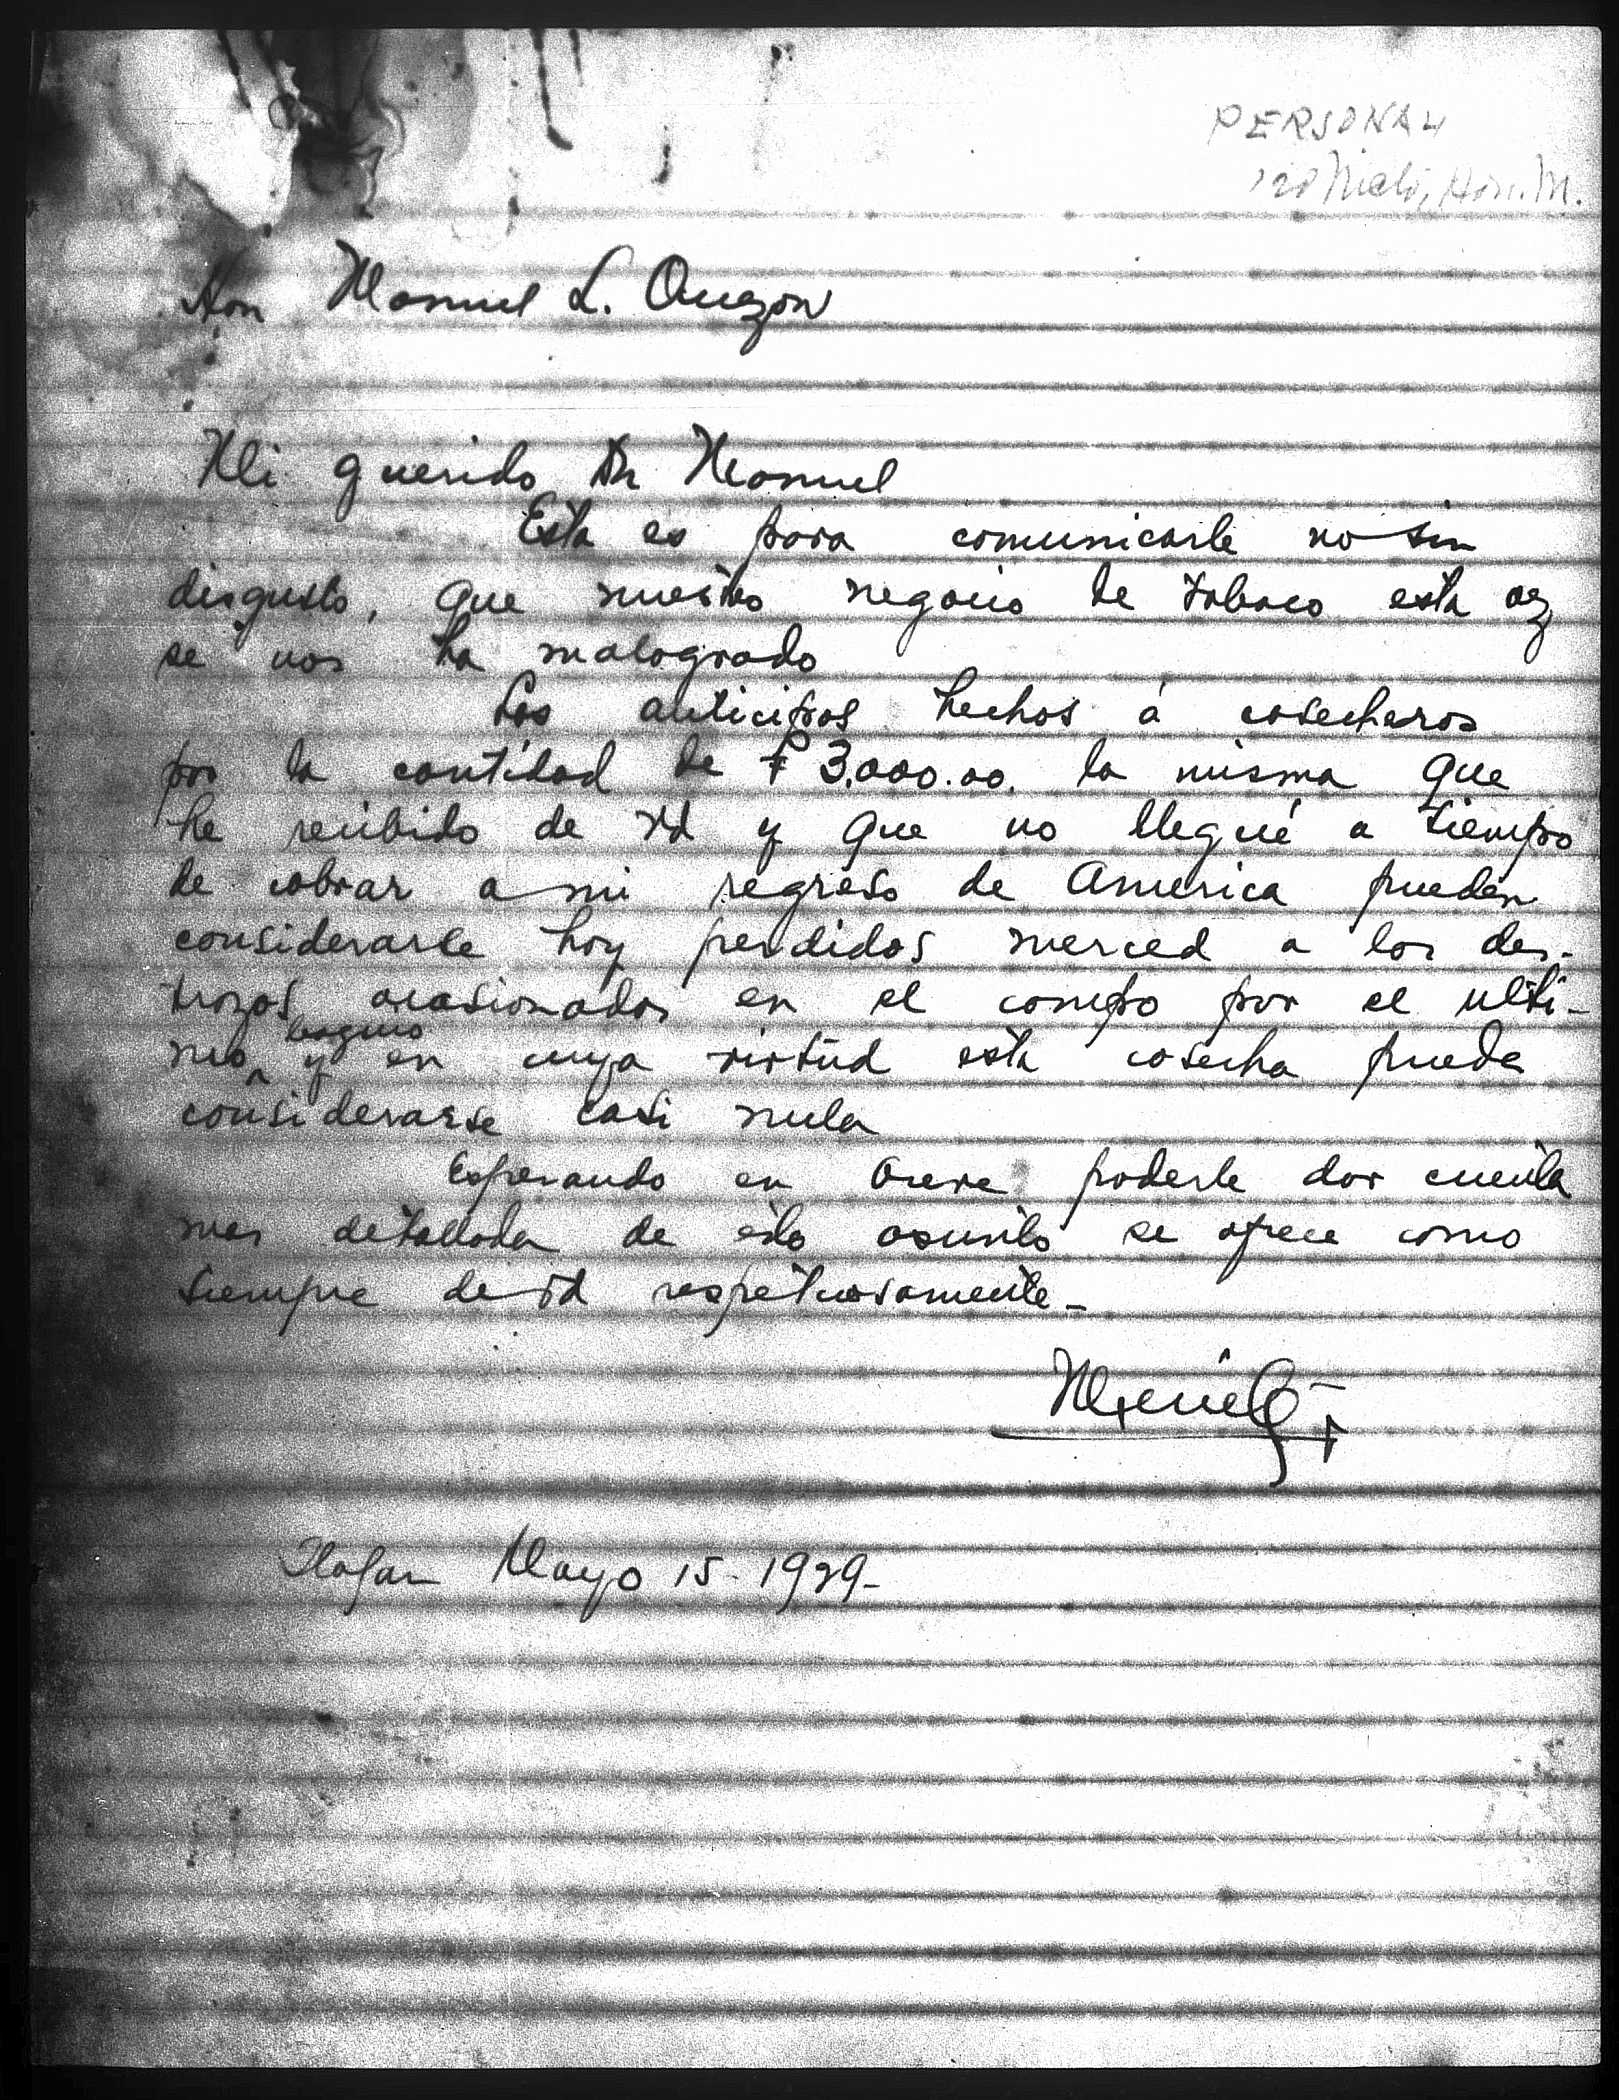 PERSONAL
Nieto, Hon. M.
Hon Manuel L. Quezon
Mi querido Dn Manuel
Esta es para comunicarle no sin
disgusto, que nuestro negocio de tabaco esta vez
se nos ha malogrado
Los anticipos hechos á cosecheros
por la cantidad de ₱ 3.000.00. la misma que
he recibido de Vd y que no llegué a tiempo
de cobrar a mi regreso de America pueden
considerarse hoy perdidos merced a los des-
trozos ocasionados en el campo por el ulti-
mo baguio y en cuya virtud esta cosecha puede
considerarse casi nula
Esperando en breve poderle dar cuenta
mas detallada de esto asunto se ofrece como
siempre de Vd respetuosamente-
Ilagan Mayo 15-1929-